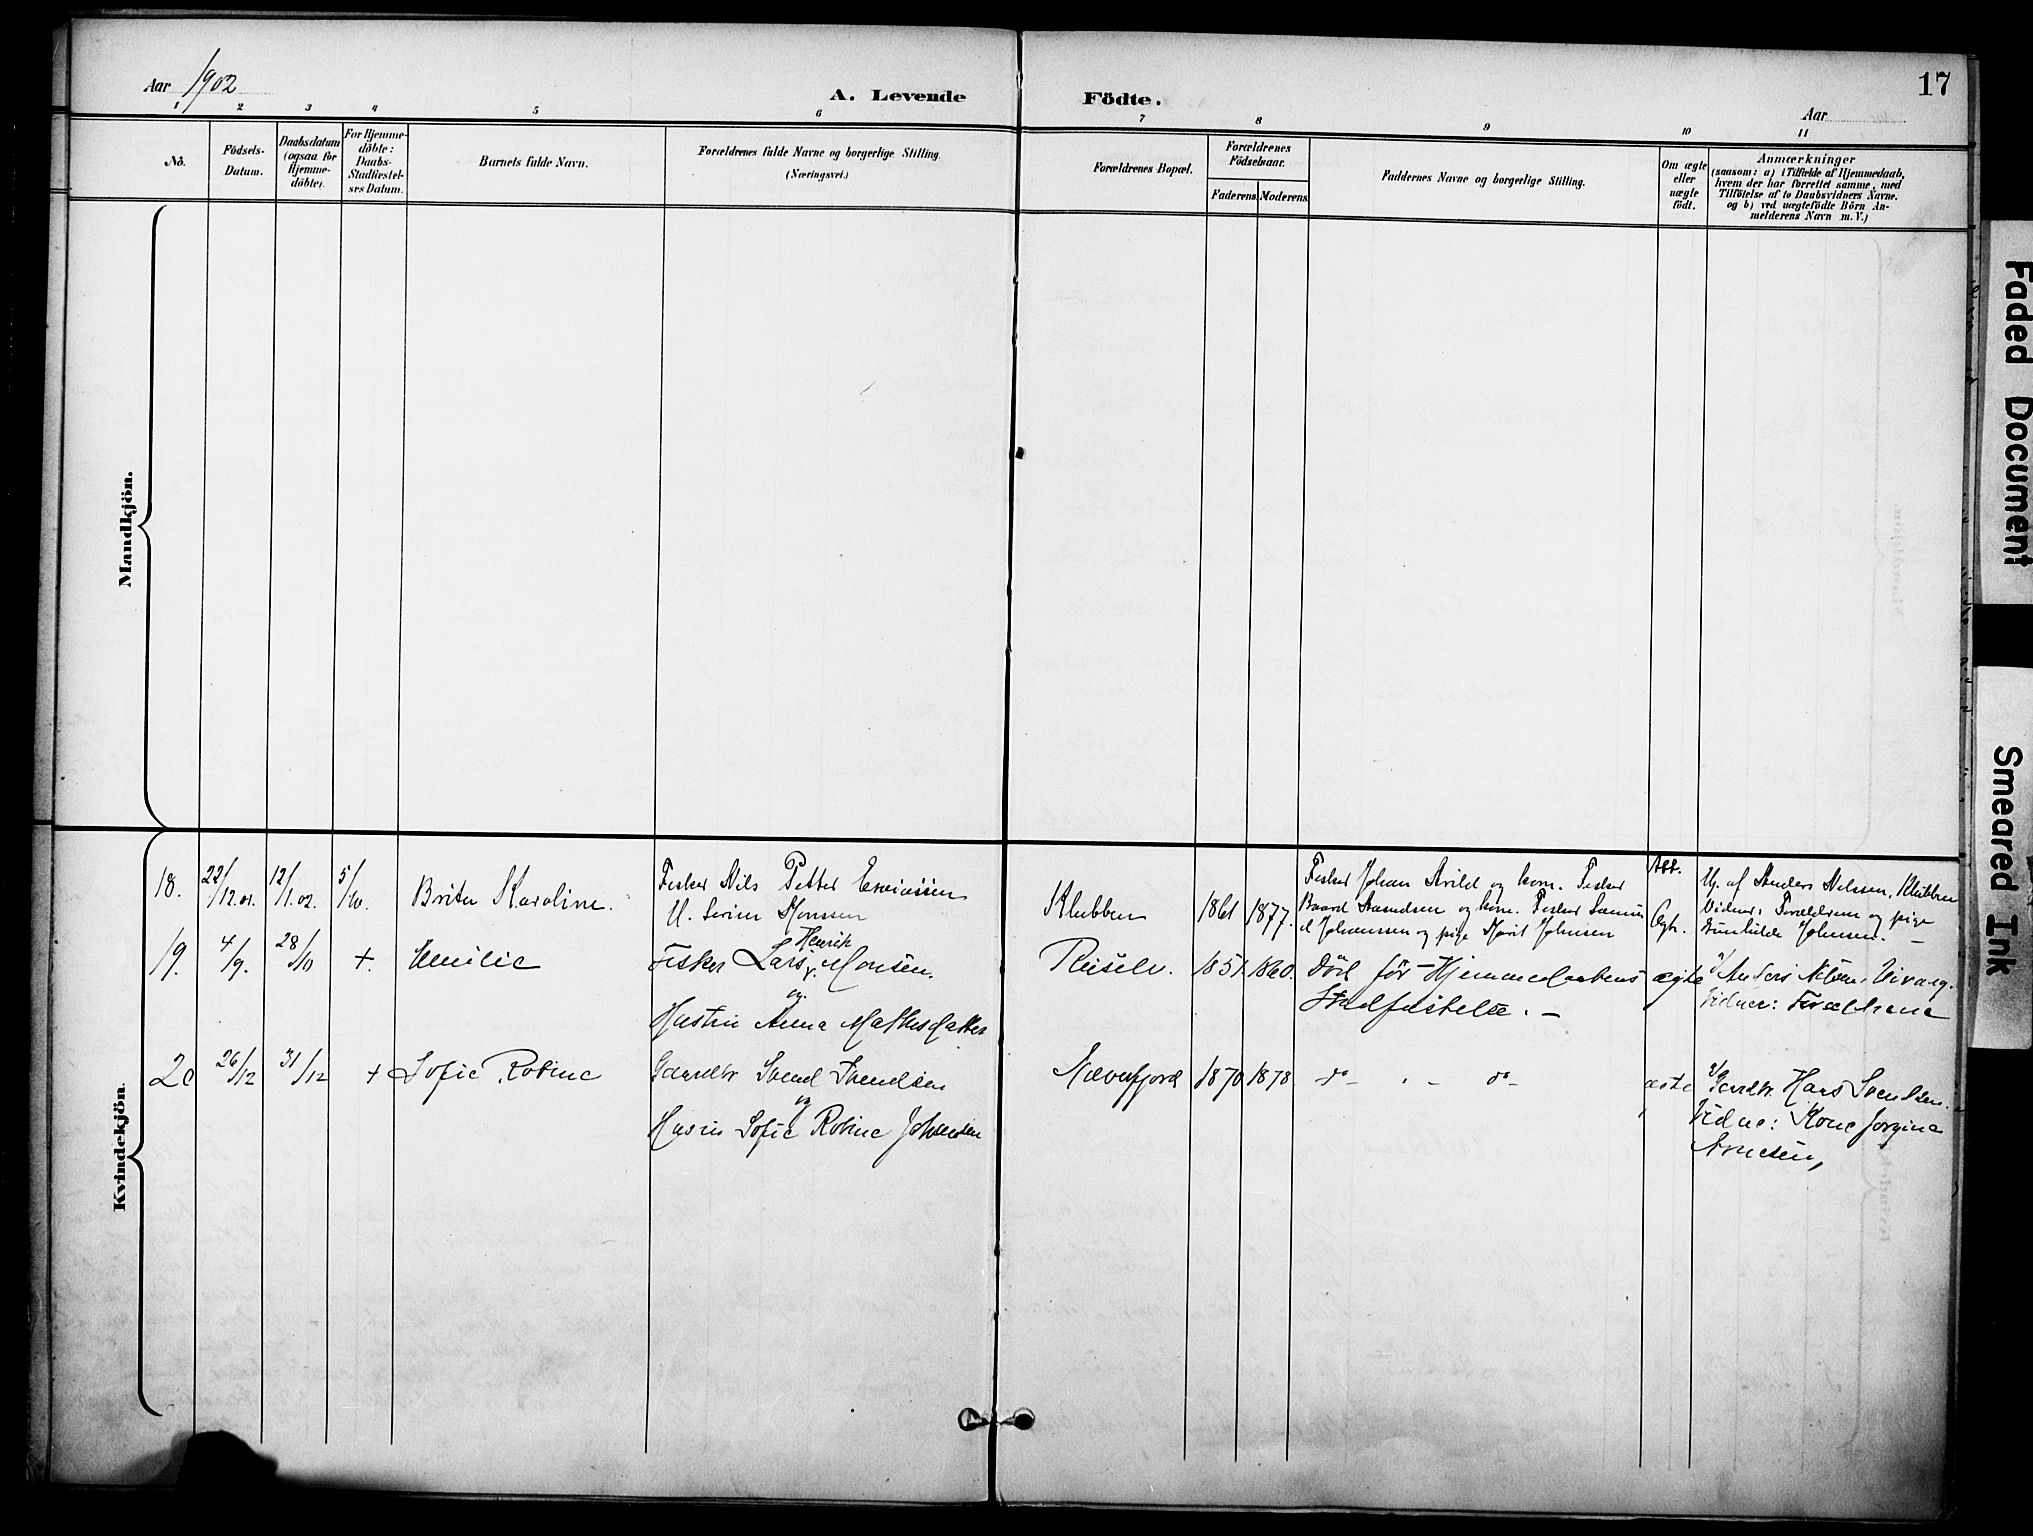 Aar 1902
A. Levende Födte.
17
Aar
1 2 3 4 5 6 7 8 9 10 11
No.
Födsels-
Datum.
Daabsdatum
(ogsaa for
Hjemme-
döbte).
For Hjemme-
döbte:
Daabs-
Stadfæstel-
ses Datum.
Barnets fulde Navn.
Forældrenes fulde Navne og borgerlige Stilling.
(Næringsvei.)
Forældrenes Bopæl.
Forældrenes
Födselsaar.
Faderens. Moderens.
Faddernes Navne og borgerlige Stilling.
Om ægte
eller
uægte
födt.
Anmærkninger
(saasom: a) i Tilfælde af Hjemmedaab,
hvem der har forrettet samme, med
Tilföielse af to Daabsvidners Navne.
og b) ved uægtefödte Börn An-
melderens Navn m. V.)
Mandkjön.
Kvindekjön.
18.
22/12.01.
12/1.02.
5/10.
Brita Karoline.
Fisker Nils Petter
H.
Klubben
1861
1877.
Fisker Johan og kone. Fisker
Baard og kone. Fisker
Johanssen og pige Marit Johnsen
Ægt.
Hj. af Anders Nilssen, Klubben
Vidner: Forældrene og pige
Johnsen. –
19.
4/9.
28/10
+.
Emilie
Fisker Lars Henrik Monsen.
og
Hustru Anna Mathisdatter
1851.
1860.
Död för Hjemmedaabens
Stadfæstelse. –
ægte
v/ Anders Nilsen.
Vidner: Forældrene
20
26/12
31/12
+
Sofie Robine
Gaardbr Svend Svendsen
og
Hustru Sofie Robine
Nævnfjord
1870
1878
do – . – do –
ægte
v/ Gaardbr. Hans Svendsen.
Vidne: Kone Jorgine
Arnesen,
Faded Document
Smeared Ink